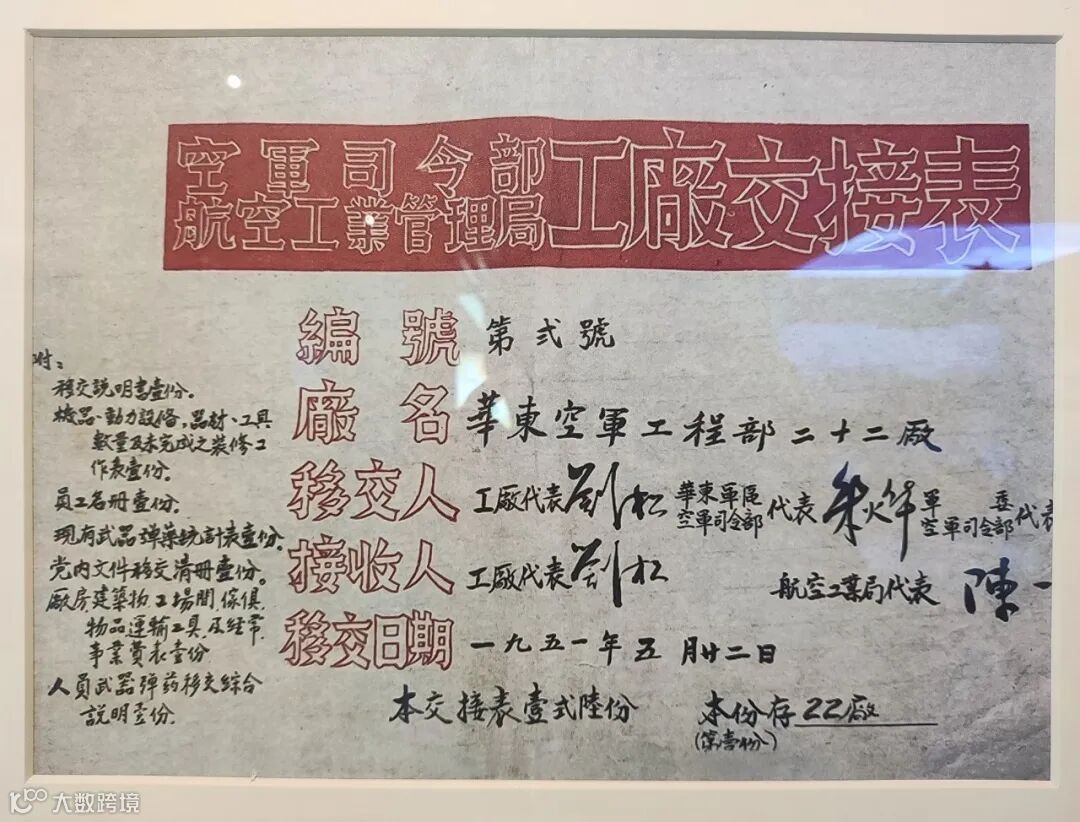 空軍司令部
航空工業管理局
工廠交接表
編號 第弍號
廠名 華東空軍工程部二十二廠
移交人 工廠代表 劉松 華東軍區空軍司令部代表 軍委空軍司令部代表
接收人 工廠代表 劉松 航空工業局代表 陳一
移交日期 一九五一年五月廿二日
本交接表壹式陸份 本份存22廠
(第壹份)
附:
移交説明書壹份。
機器、動力設俻,器材、工具
數量及未完成之裝修工
作表壹份。
員工名册壹份。
現有武器弹藥統計表壹份。
党内文件移交清册壹份。
廠房建築物,工場間,傢俱,
物品運輸工具,及經常
事業費表壹份
人員武器弹药移交綜合
説明壹份.
大数跨境